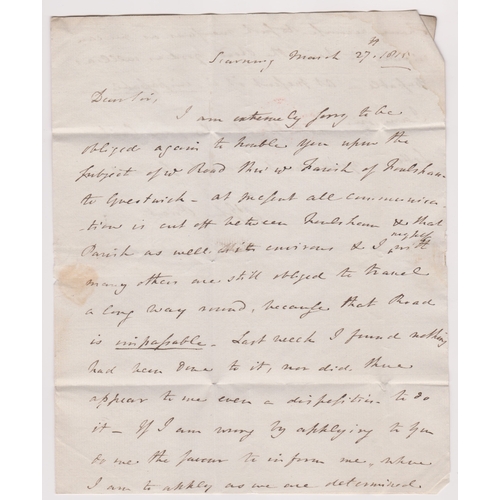 Scarning March 27th. 1815
Dear Sir,
I am extremely sorry to be
obliged again to trouble You upon the
subject of Road Parish of Foulsham
to Guestwick - at present all communica-
tion is cut off between Foulsham & that
Parish as well with environs & I myself with
many others are still obliged to travel
a long way round, because that Road
is impassable - Last week I found nothing
had been done to it, nor did there
appear to me even a disposition to do
it - If I am wrong by applying to You
do me the favour to inform me, where
I am to apply as we are determined